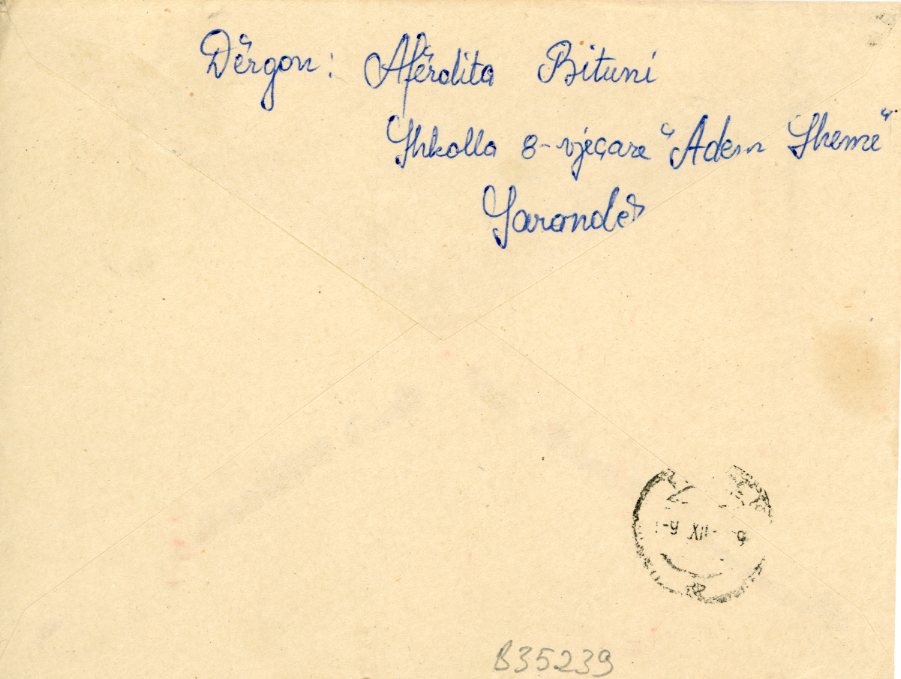 Dërgon: Afërdita Bituni
Shkolla 8-vjeçare "Adem Sheme"
Sarandë
XII
B35239